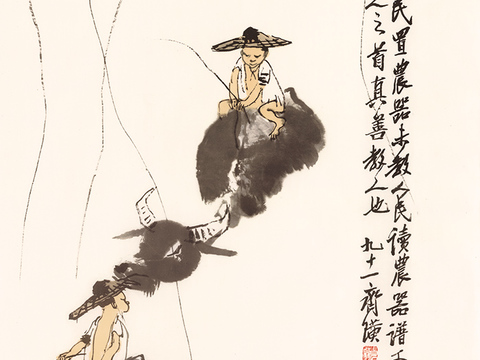 民置農器未教人民讀農器譜王
人之首真善教人也 九十一齊璜